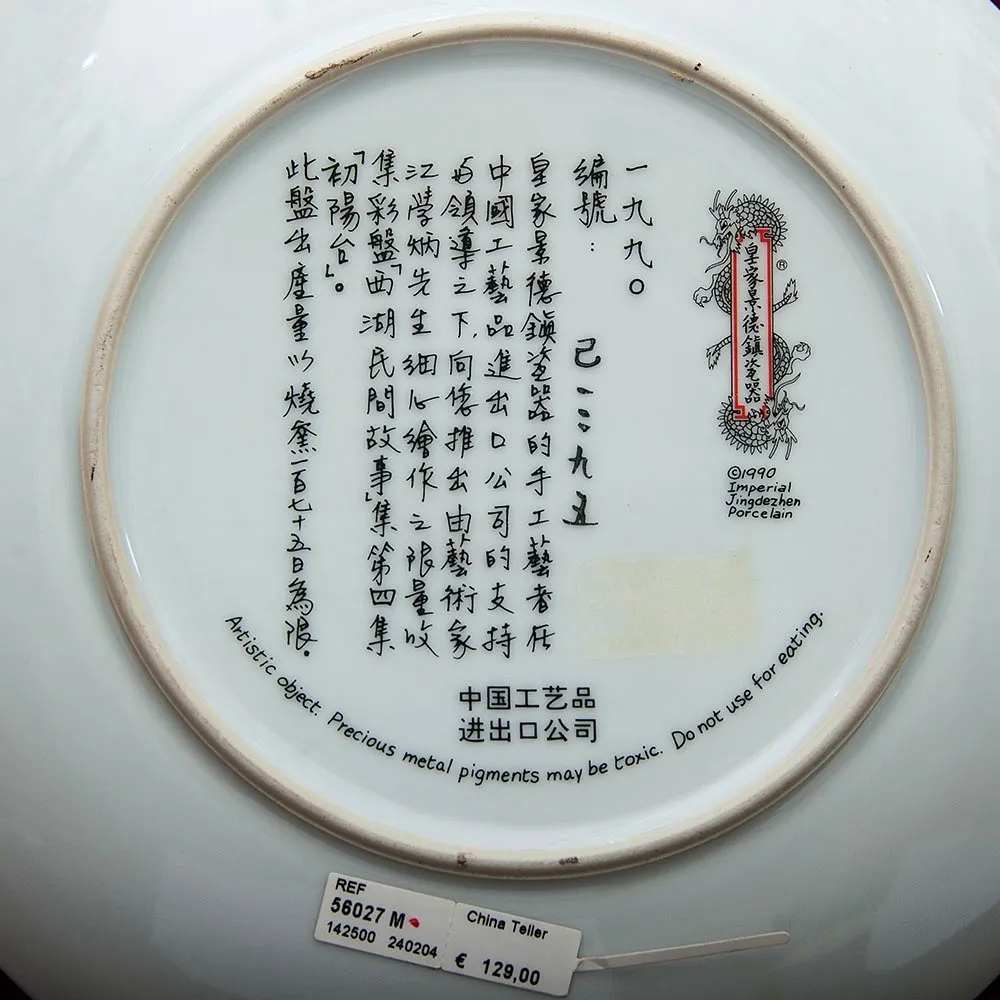 皇家景德鎮瓷器
®
©1990
Imperial
Jingdezhen
Porcelain
一九九〇
編號：
皇家景德鎮瓷器的手工藝者在
中國工藝品進出口公司的支持
與領導之下,向您推出由藝術家
江學炳先生細心繪作之限量收
集彩盤「西湖民間故事」集第四集
「初陽台」。
此盤出產量以燒窯一百七十五日為限。
中国工艺品
进出口公司
Artistic object. Precious metal pigments may be toxic. Do not use for eating.
REF
56027 M
142500 240204
China Teller
€ 129,00